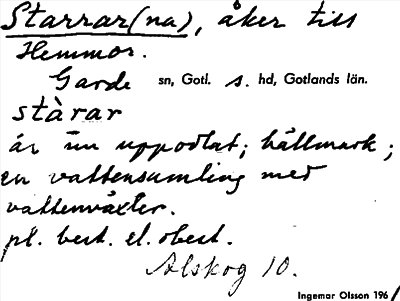 Starrar(na), åker till
Hemmor.
Garde sn, Gotl. s. hd, Gotlands län.
stàrar
är nu uppodlat; hällmark;
en vattensamling med
vattenväxter.
pl. best. el. obest.
Alskog 10.
Ingemar Olsson 196/